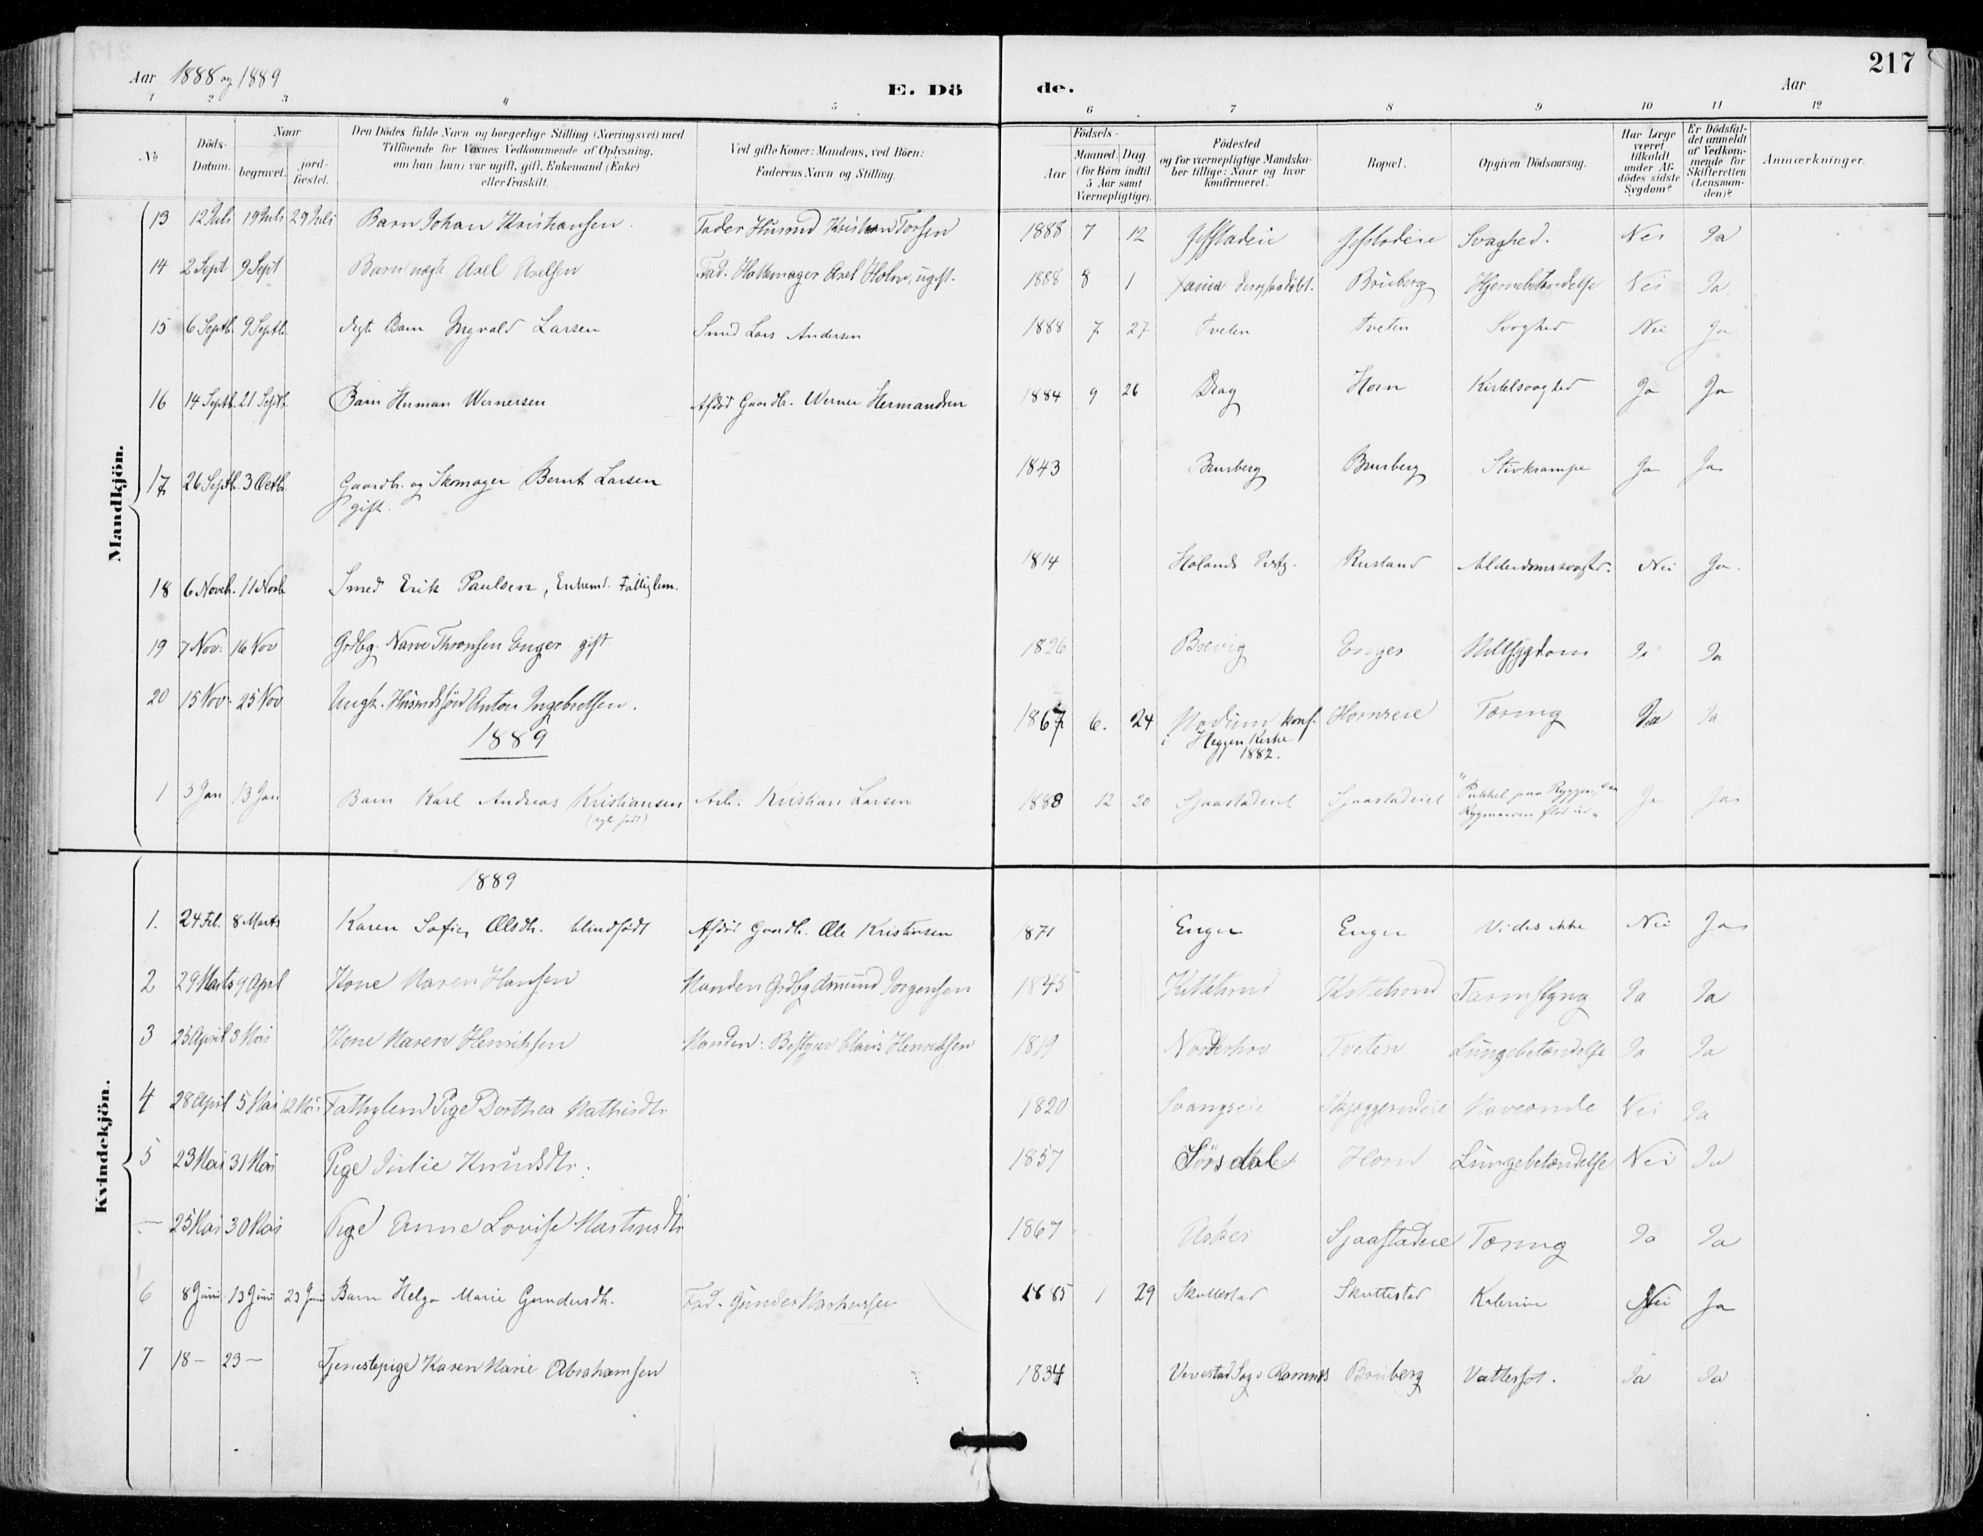 217
Aar 1888 og 1889
E. Dö
de.
Aar
1 2 3 4 5 6 7 8 9 10 11 12
No
Döds-Datum.
Naar
begravet.
jord-fæstet.
Den Dödes fulde Navn og borgerlige Stilling (Næringsvei) med
Tilföiende for Voxnes Vedkommende af Oplysning,
om han (hun) var ugift, gift, Enkemand (Enke)
eller fraskilt.
Ved gifte Koner: Mandens, ved Börn:
Faderens Navn og Stilling.
Födsels-
Aar
Maaned. Dag
(for Börn indtil
5 Aar samt
Værnepligtige).
Födested
og for værnepligtige Mandska-
ber tillige: Naar og hvor
konfirmeret.
Bopæl.
Opgiven Dödsaarsag.
Har Læge
været
tilkaldt
under Af-
dödes sidste
Sygdom?
Er Dödsfal-
det anmeldt
af Vedkom-
mende for
Skifteretten
(Lensman-
den)?
Anmærkninger.
Mandkjön.
13 12 Juli 19 Juli 29 Juli Barn Johan Kristiansen. Fader Husmd Kristian Torsen 1888 7 12 Svaghed. Nei Ja
14 2 Sept 9 Sept Barn uægte Axel Axelsen Fad. Hattemager Axel Holm, ugift. 1888 8 1 Bruberg Hjernebetændelse Nei Ja
15 6 Septb. 9 Septb. Ægte Barn Ingvald Larsen Smed Lars Andersen 1888 7 27 Tveten Tveten Svaghed Nei Ja
16 14 Septb. 21 Septb. Barn Herman Wernersen Afdød Gaardb. Werner Hermandsen 1884 9 26 Drag Horn Kirtelsvaghed Ja Ja
17 26 Septb. 3 Octb. Gaardb. og Skomager Bernt Larsen 1843 Bruberg Bruberg Stivkrampe Ja Ja
gift.
18 6 Novb. 11 Novb Smed Erik Paulsen, Enkemd. Fattiglem. 1814 Hølands Prstg. Rustand Alderdomssvaghed. Nei Ja.
19 7 Nov. 16 Nov Grdbg. Narve Thronsen Enger gift. 1826 Brevig Enger Miltsygdom Ja Ja
20 15 Nov. 25 Nov Ungk. Husmdssøn Anton Ingebretsen. 1867 6. 24 Modum konf. Hornseie Tæring Ja Ja
i Heggen Kirke
1882.
1889
1 3 Jan 13 Jan Barn Karl Andreas Kristiansen Arb. Kristian Larsen 1888 12 20 Sjaastadeiet Sjaastadeiet "Pukkel paa Ryggen, Ja Ja
(ægte født)
Kvindekjön.
1889
1. 24 Feb. 8 Marts Karen Sofie Olsdtr. blindfødt Afdød Gaardb. Ole Kristiansen 1871 Enger Enger Vides ikke Nei Ja
2 29 Marts 9 April Kone Maren Hansen Manden Grdbg Amund Jørgensen 1845 Kittelsrud Kittelsrud Ja Ja
3 25 April 3 Mai Kone Maren Henriksen Manden: Bestyrer Claus Henriksen 1819 Norderhov Tveten Lungebetændelse Ja Ja
4 28 April 5 Mai 12 Mai Fattiglem Pige Dorthea Mathisdtr 1820 Svangseie Maveonde Nei Ja
5 23 Mai 31 Mai Pige Julie Knudsdtr. 1857 Sörsdal Horn Lungebetændelse Nei Ja
— 25 Mai 30 Mai Pige Anne Lovise Martinsdtr 1867 Asker Sjaastadeie Tæring Ja Ja
6 8 Juni 13 Juni 23 Juni Barn Helga Marie Gundersdtr. Fad. Gunder Mathissen 1885 1 29 Skuttestad Skuttestad Kolerine Nei Ja
7 18 — 23 — Tjenestepige Karen Marie Abrahamsen 1834 Vivestad Sogn Ramnes Bruberg Vattersot. Ja Ja